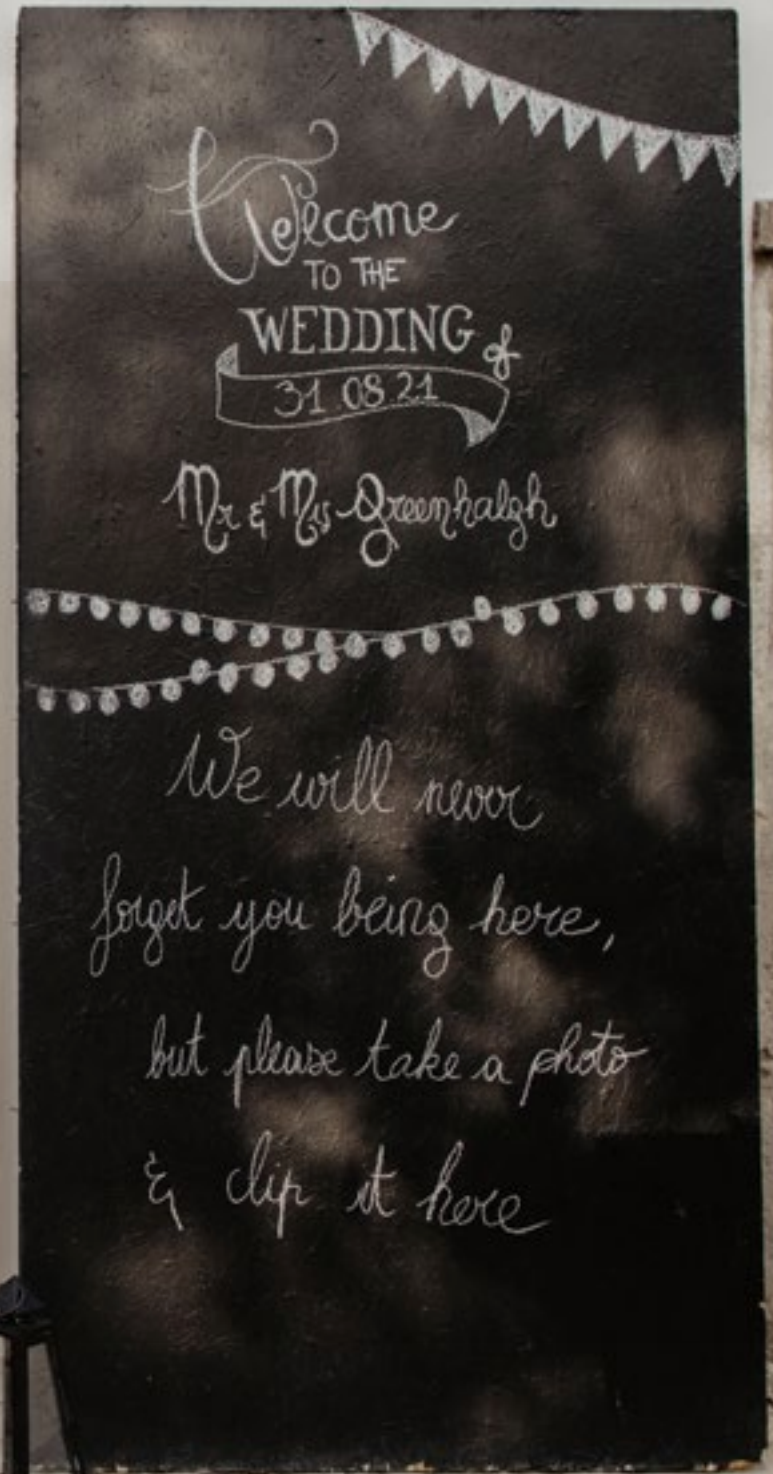 Welcome
TO THE
WEDDING of
31.08.21
Mr & Mrs Greenhalgh
We will never
forget you being here,
but please take a photo
& clip it here